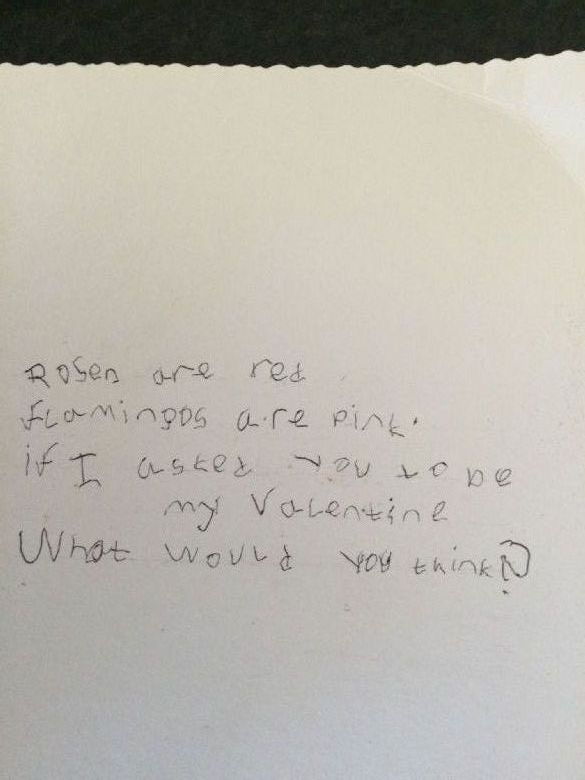 Roses are red
flamingos are pink.
if I asked you to be
my Valentine
What would you think?